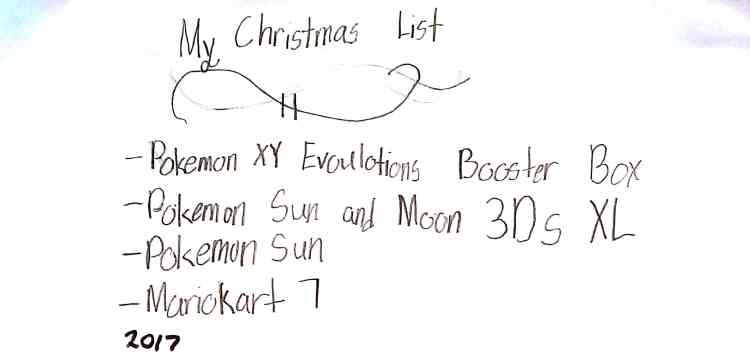 My Christmas List
-Pokemon XY Evoulotions Booster Box
-Pokemon Sun and Moon 3Ds XL
-Pokemon Sun
-Mariokart 7
2017